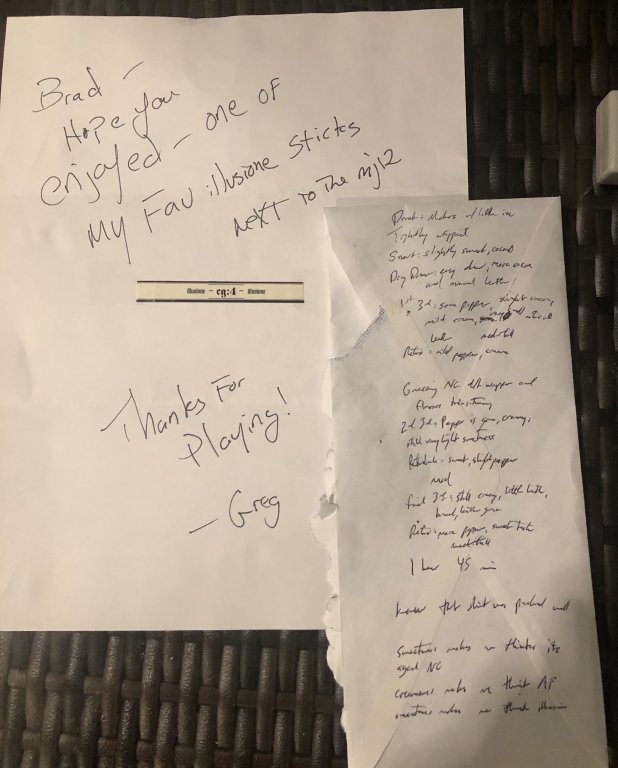 Brad -
Hope you
enjoyed - one of
My Fav illusione sticks
next to the mj12
illusione ~ cg:4 ~ illusione
Thanks For
Playing!
- Greg
Drink: w/ little ice
Tightly wrapped
slightly sweet, cocoa
Dry Draw: easy draw, more cocoa
and mineral
1st 3d: some pepper, slight
mild cream,
med-full
Retro: mild pepper, cream
Guessing NC wrapper and
flavors
2d 3d: Pepper is gone, creamy,
still very light sweetness
sweet, slight pepper
med
Final 3d: still creamy, little
Retro: more pepper, sweet
1 hour 45 min
Know that shit was packed well
Sweetness makes me thinks its
aged NC
Creaminess makes me think AF
sweetness makes me think illusione